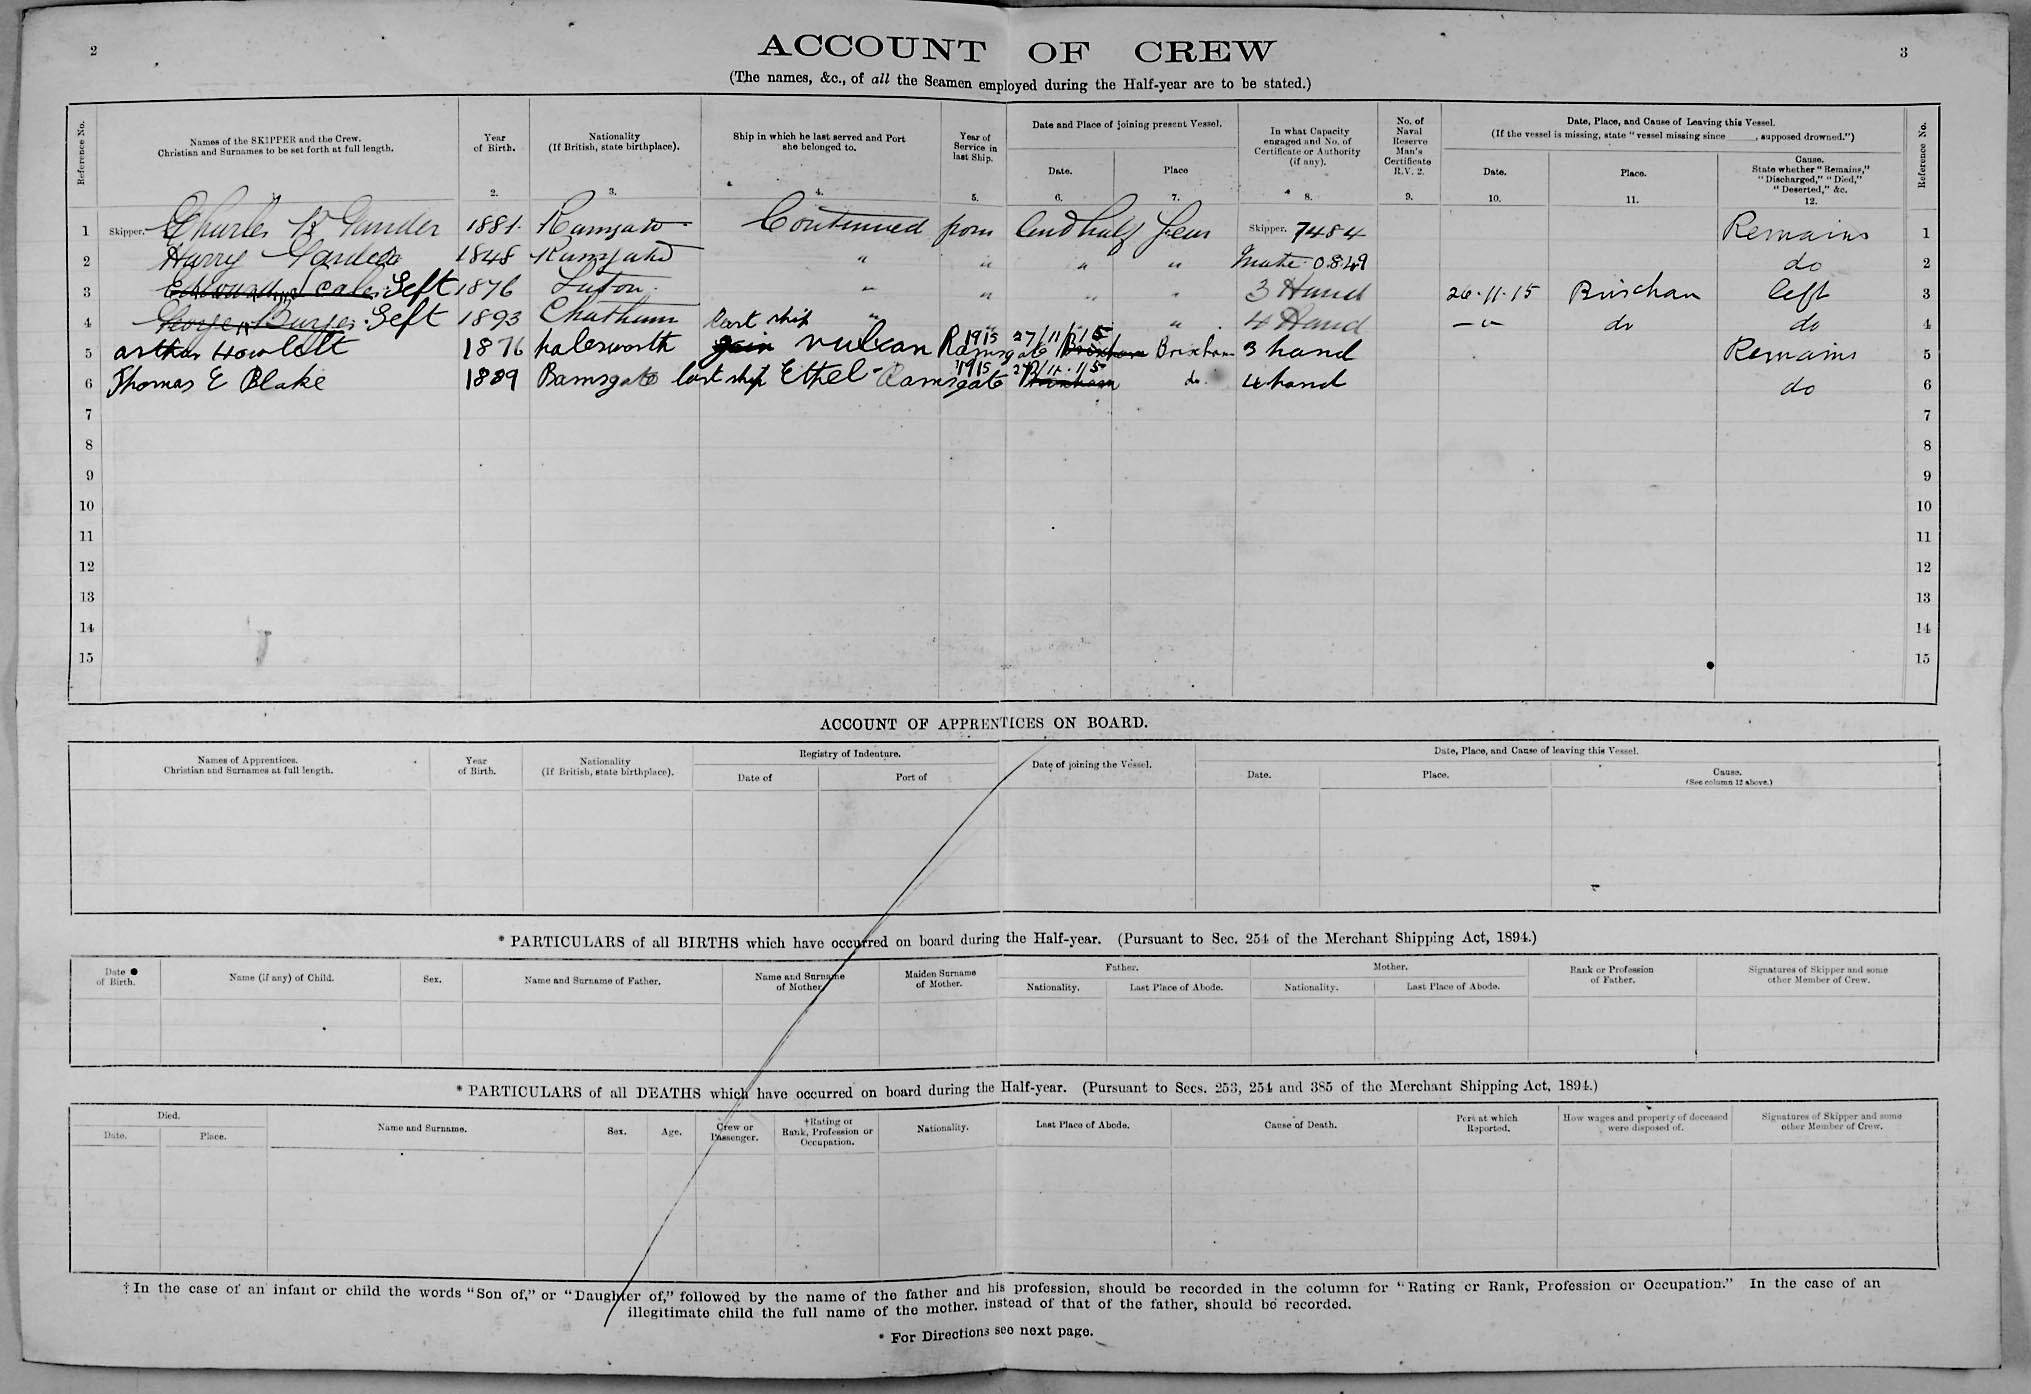 2
ACCOUNT OF CREW
3
(The names, &c., of all the Seamen employed during the Half-year are to be stated.)
Reference No.
Names of the SKIPPER and the Crew.
Christian and Surnames to be set forth at full length.
Year of Birth.
2.
Nationality
(If British, state birthplace).
3.
Ship in which he last served and Port she belonged to.
4.
Year of Service in last Ship.
5.
Date and Place of joining present Vessel.
Date.
6.
Place
7.
In what Capacity engaged and No. of Certificate or Authority (if any).
8.
No. of Naval Reserve Man's Certificate R.V. 2.
9.
Date, Place, and Cause of Leaving this Vessel.
(If the vessel is missing, state "vessel missing since , supposed drowned.")
Date.
10.
Place.
11.
Cause.
State whether "Remains," "Discharged," "Died," "Deserted," &c.
12.
Reference No.
1 Skipper. Charles 1881 Ramsgate Continued from half Year Skipper. 7484 Remains 1
2 Harry 1848 Ramsgate " " " " Mate 0849 do 2
3 Scales Left 1876 Luton " " " " 3 Hand 26.11.15 Brixham left 3
4 George Burges Left 1893 Chatham " " " " 4 Hand — " — do do 4
5 arthur Howlett 1876 halesworth Last ship Vulcan Ramsgate 1915 27/11/15 Brixham Brixham 3 hand Remains 5
6 Thomas E Blake 1889 Ramsgate last ship Ethel - Ramsgate 1915 27/11.15 Brixham do. 4 hand do 6
7 7
8 8
9 9
10 10
11 11
12 12
13 13
14 14
15 15
ACCOUNT OF APPRENTICES ON BOARD.
Names of Apprentices.
Christian and Surnames at full length.
Year of Birth.
Nationality
(If British, state birthplace).
Registry of Indenture.
Date of
Port of
Date of joining the Vessel.
Date, Place, and Cause of leaving this Vessel.
Date.
Place.
Cause.
(See column 12 above.)
* PARTICULARS of all BIRTHS which have occurred on board during the Half-year. (Pursuant to Sec. 254 of the Merchant Shipping Act, 1894.)
Date of Birth.
Name (if any) of Child.
Sex.
Name and Surname of Father.
Name and Surname of Mother.
Maiden Surname of Mother.
Father.
Nationality.
Last Place of Abode.
Mother.
Nationality.
Last Place of Abode.
Rank or Profession of Father.
Signatures of Skipper and some other Member of Crew.
* PARTICULARS of all DEATHS which have occurred on board during the Half-year. (Pursuant to Secs. 253, 254 and 385 of the Merchant Shipping Act, 1894.)
Died.
Date.
Place.
Name and Surname.
Sex.
Age.
Crew or Passenger.
†Rating or Rank, Profession or Occupation.
Nationality.
Last Place of Abode.
Cause of Death.
Port at which Reported.
How wages and property of deceased were disposed of.
Signatures of Skipper and some other Member of Crew.
† In the case of an infant or child the words "Son of," or "Daughter of," followed by the name of the father and his profession, should be recorded in the column for "Rating or Rank, Profession or Occupation." In the case of an
illegitimate child the full name of the mother, instead of that of the father, should be recorded.
* For Directions see next page.